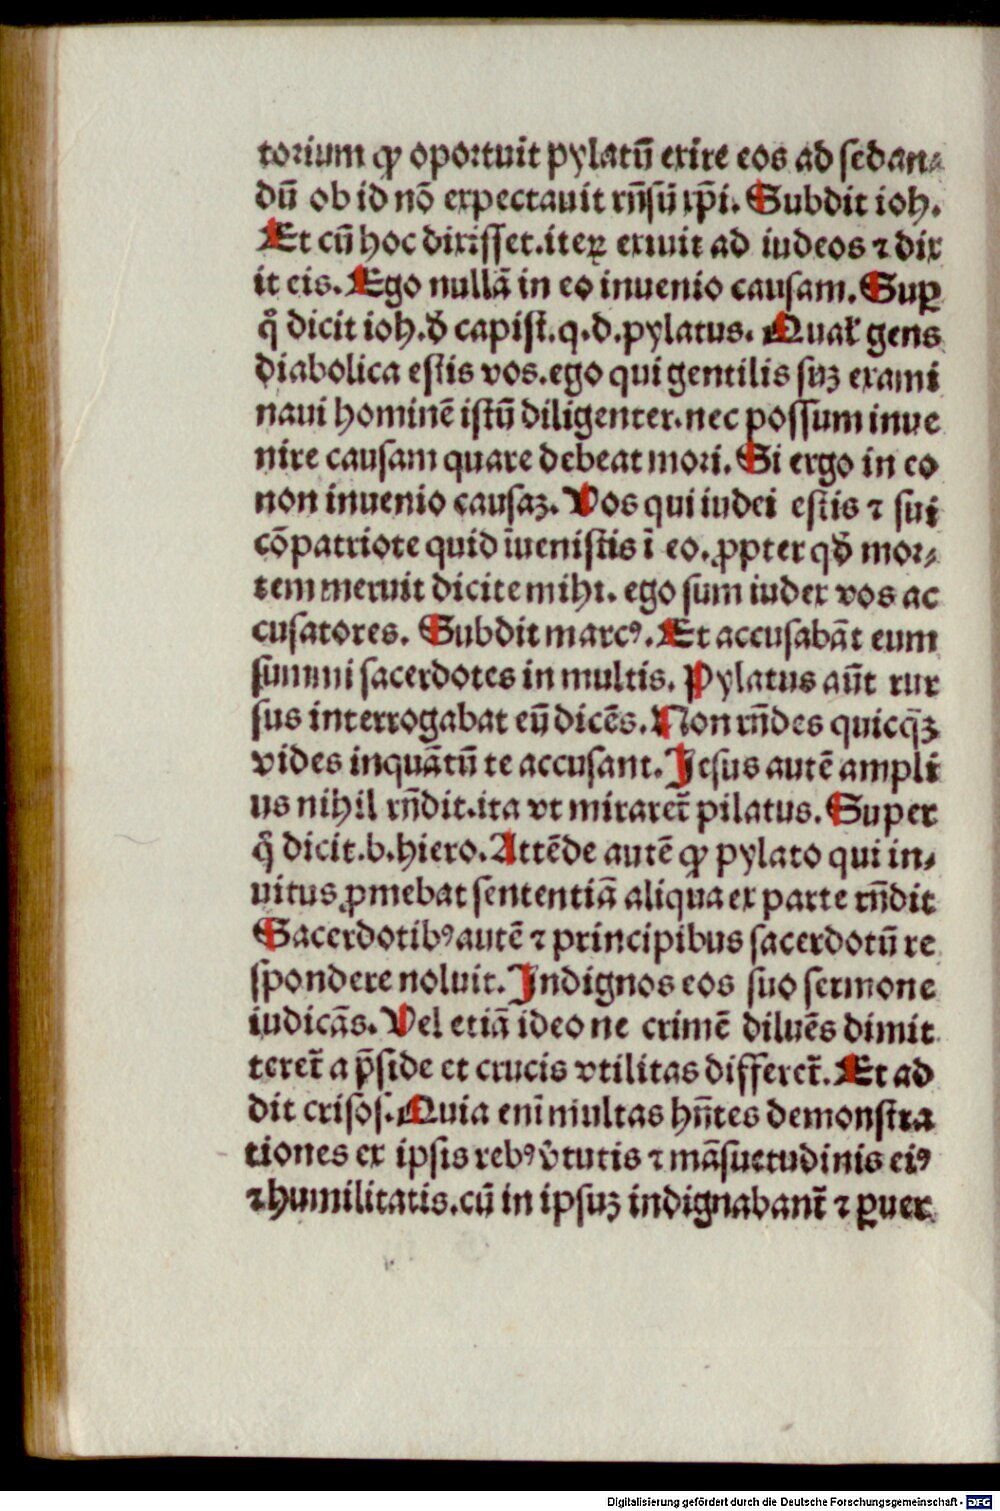 torium ꝙ oportuit pylatū exire eos ad sedan⸗
dū ob id nō expectauit rn̄sū xp̄i. Subdit ioh.
Et cū hoc dixisset.iteꝝ exiuit ad iudeos ⁊ dix
it eis. Ego nullā in eo inuenio causam. Suꝑ
q̊ dicit ioh.đ capist.q.d.pylatus. Qualꝭ gens
diabolica estis vos.ego qui gentilis suꝫ exami
naui hominē istū diligenter.nec possum inue
nire causam quare debeat mori. Si ergo in eo
non inuenio causaꝫ. Vos qui iudei estis ⁊ sui
cōpatriote quid īuenistis ī eo.ꝓpter qđ mor⸗
tem meruit dicite mihi. ego sum iudex vos ac
cusatores. Subdit marcꝰ. Et accusabāt eum
summi sacerdotes in multis. Pylatus aūt rur
sus interrogabat eū dicēs. Non rn̄des quicq̄ꝫ
vides inquātū te accusant. Jesus autē ampli
us nihil rn̄dit.ita vt miraret̄ pilatus. Super
q̊ dicit.b.hiero. Attēde autē ꝙ pylato qui in⸗
uitus ꝓmebat sententiā aliqua ex parte rn̄dit
Sacerdotibꝰ autē ⁊ principibus sacerdotū re
spondere noluit. Indignos eos suo sermone
iudicās. Vel etiā ideo ne crimē diluēs dimit
teret̄ a p̄side et crucis vtilitas differet̄. Et ad
dit crisos. Quia enī multas hn̄tes demonstra
tiones ex ipsis rebꝰ v̓tutis ⁊ māsuetudinis eiꝰ
⁊ humilitatis.cū in ipsuꝫ indignabant̄ ⁊ ꝑuer
Digitalisierung gefördert durch die Deutsche Forschungsgemeinschaft - DFG